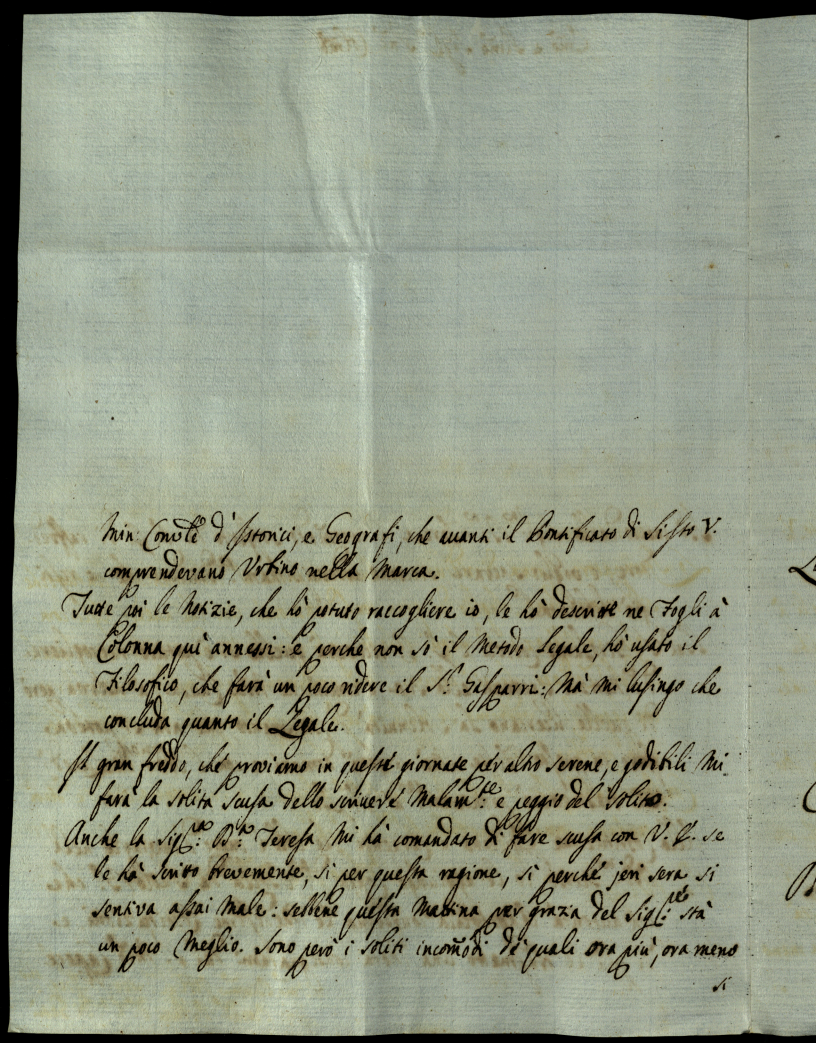 d' Istorici, e Geografi, che avanti il Pontificato di Sisto V.
comprendevano Urbino nella Marca.
Tutte poi le Notizie, che hò potuto raccogliere io, le hò descritte ne Fogli à
Colonna quì annessi: e perche non sò il Metodo Legale, hò usato il
Filosofico, che farà un poco ridere il S.r Gasparri: Mà mi lusingo che
concluda quanto il Legale.
Il gran freddo, che proviamo in queste giornate per altro serene, e godibili mi
farà la solita scusa dello scrivere Malam.te e peggio del solito.
Anche la Sig.ra B.a Teresa mi hà comandato di fare scusa con V. E. se
le hà scritto brevemente, sì per questa ragione, sì perchè jeri sera si
sentiva assai Male: sebbene questa Mattina per grazia del Sig.re stà
un poco Meglio. Sono però i soliti incomodi de quali ora più, ora meno
si